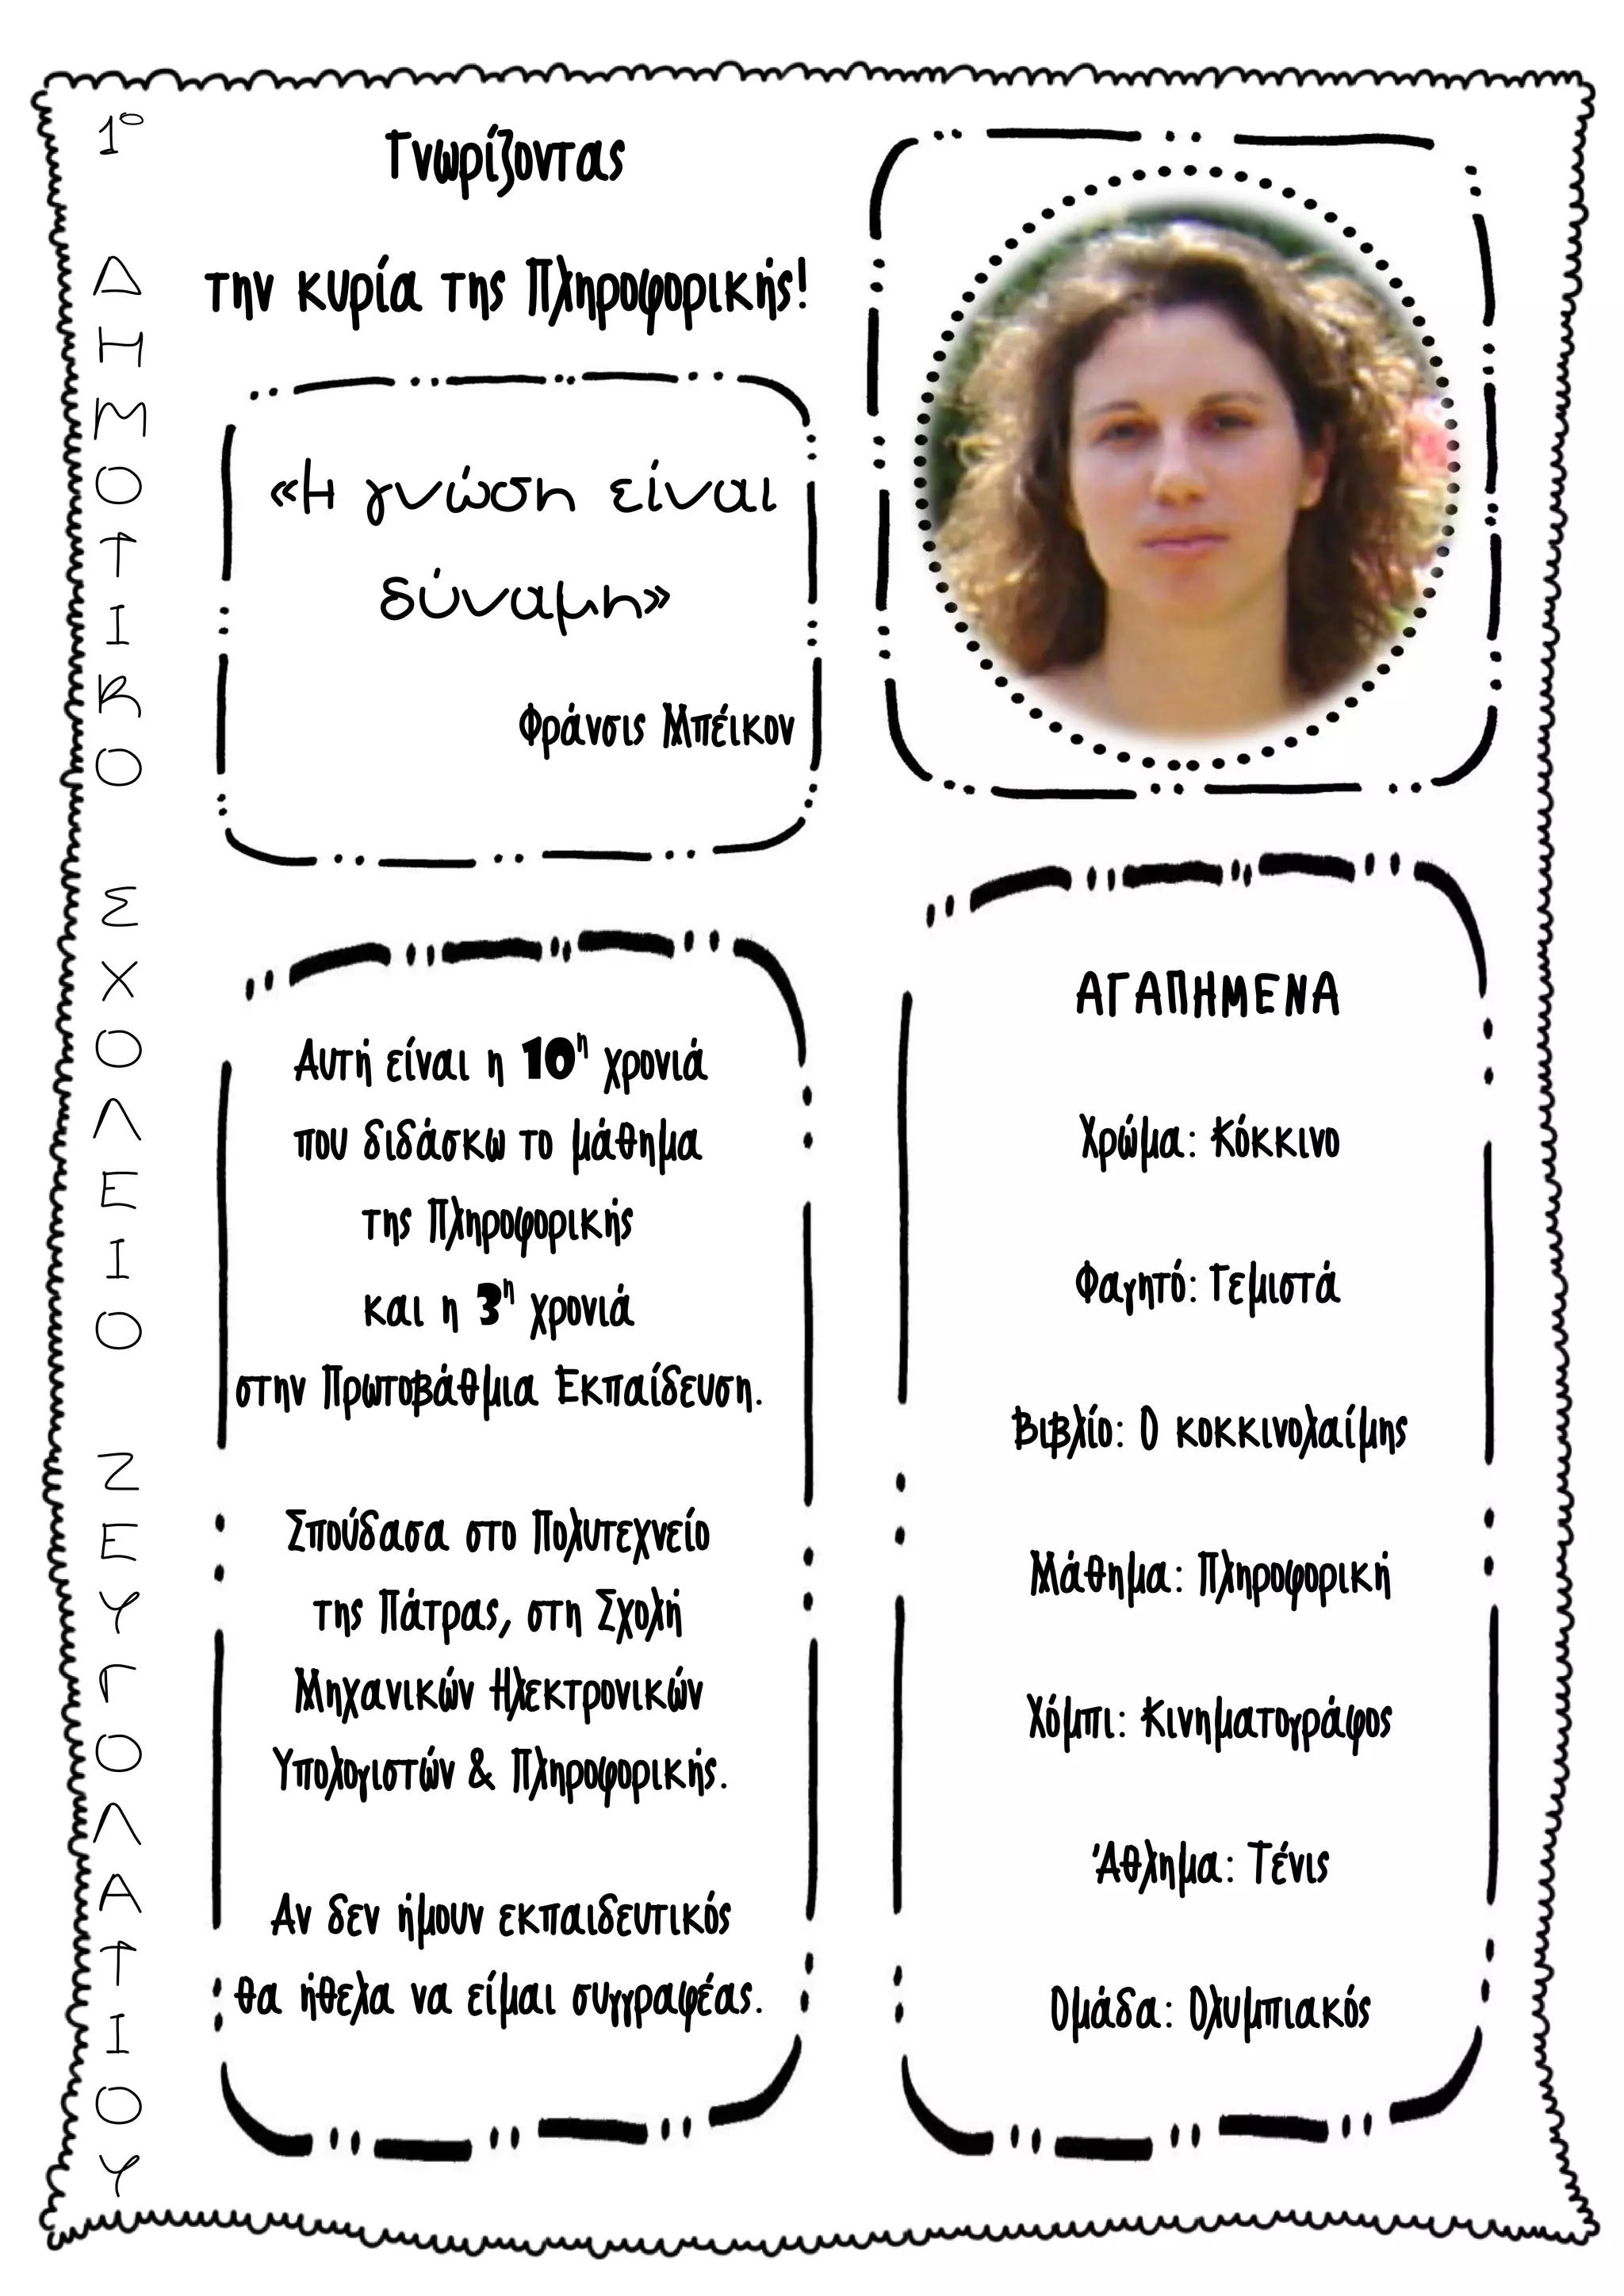 1ο ΔΗΜΟΤΙΚΟ ΣΧΟΛΕΙΟ ΖΕΥΓΟΛΑΤΙΟΥ
Γνωρίζοντας
την κυρία της Πληροφορικής!
«Η γνώση είναι
δύναμη»
Φράνσις Μπέικον
Αυτή είναι η 10η χρονιά
που διδάσκω το μάθημα
της Πληροφορικής
και η 3η χρονιά
στην Πρωτοβάθμια Εκπαίδευση.
Σπούδασα στο Πολυτεχνείο
της Πάτρας, στη Σχολή
Μηχανικών Ηλεκτρονικών
Υπολογιστών & Πληροφορικής.
Αν δεν ήμουν εκπαιδευτικός
θα ήθελα να είμαι συγγραφέας.
ΑΓΑΠΗΜΕΝΑ
Χρώμα: Κόκκινο
Φαγητό: Γεμιστά
Βιβλίο: Ο κοκκινολαίμης
Μάθημα: Πληροφορική
Χόμπι: Κινηματογράφος
Άθλημα: Τένις
Ομάδα: Ολυμπιακός